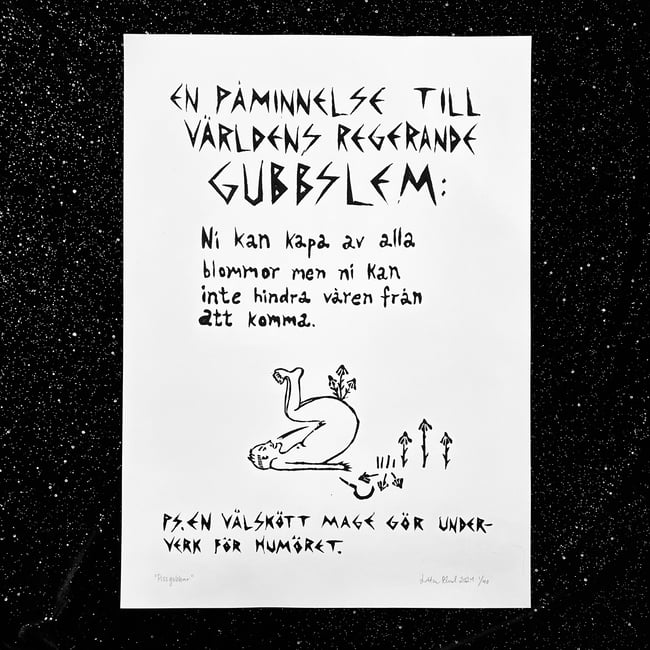 EN PÅMINNELSE TILL
VÄRLDENS REGERANDE
GUBBSLEM:
Ni kan kapa av alla
blommor men ni kan
inte hindra våren från
att komma.
PS. EN VÄLSKÖTT MAGE GÖR UNDER-
VERK FÖR HUMÖRET.
2024